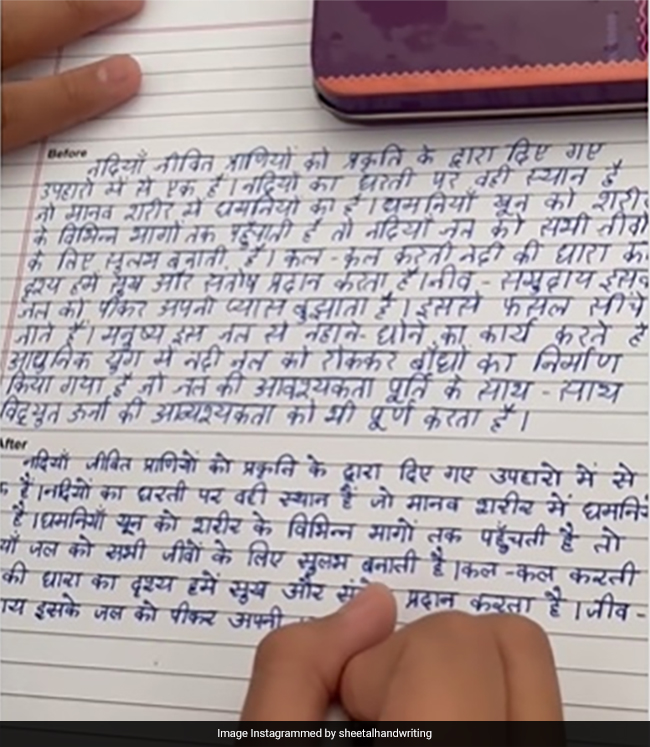 Before
नदियाँ जीवित प्राणियों को प्रकृति के द्वारा दिए गए
उपहारो में से एक है। नदियों का धरती पर वही स्थान है
जो मानव शरीर में धमनियों का है। धमनियाँ खून को शरीर
के विभिन्न भागों तक पहुँचाती है तो नदियाँ जल को सभी जीवो
के लिए सुलभ बनाती है। कल - कल करती नदी की धारा का
दृश्य हमें सुख और संतोष प्रदान करता है। जीव - समुदाय इसके
जल को पीकर अपनी प्यास बुझाता है। इससे फसल सींचे
जाते हैं। मनुष्य इस जल से नहाने-धोने का कार्य करते है
आधुनिक युग में नदी जल को रोककर बाँधों का निर्माण
किया गया है जो जल की आवश्यकता पूर्ति के साथ - साथ
विद्युत ऊर्जा की आवश्यकता को भी पूर्ण करता है।
After
नदियाँ जीवित प्राणियों को प्रकृति के द्वारा दिए गए उपहारो में से
है। नदियों का धरती पर वही स्थान है जो मानव शरीर में धमनियों
है। धमनियाँ खून को शरीर के विभिन्न भागों तक पहुँचती है तो
याँ जल को सभी जीवों के लिए सुलभ बनाती है। कल - कल करती
की धारा का दृश्य हमें सुख और प्रदान करता है। जीव -
ाय इसके जल को पीकर अपनी
Image Instagrammed by sheetalhandwriting